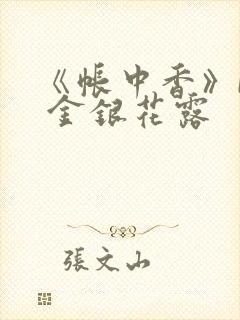 《帳中香》
金銀花露
張文山